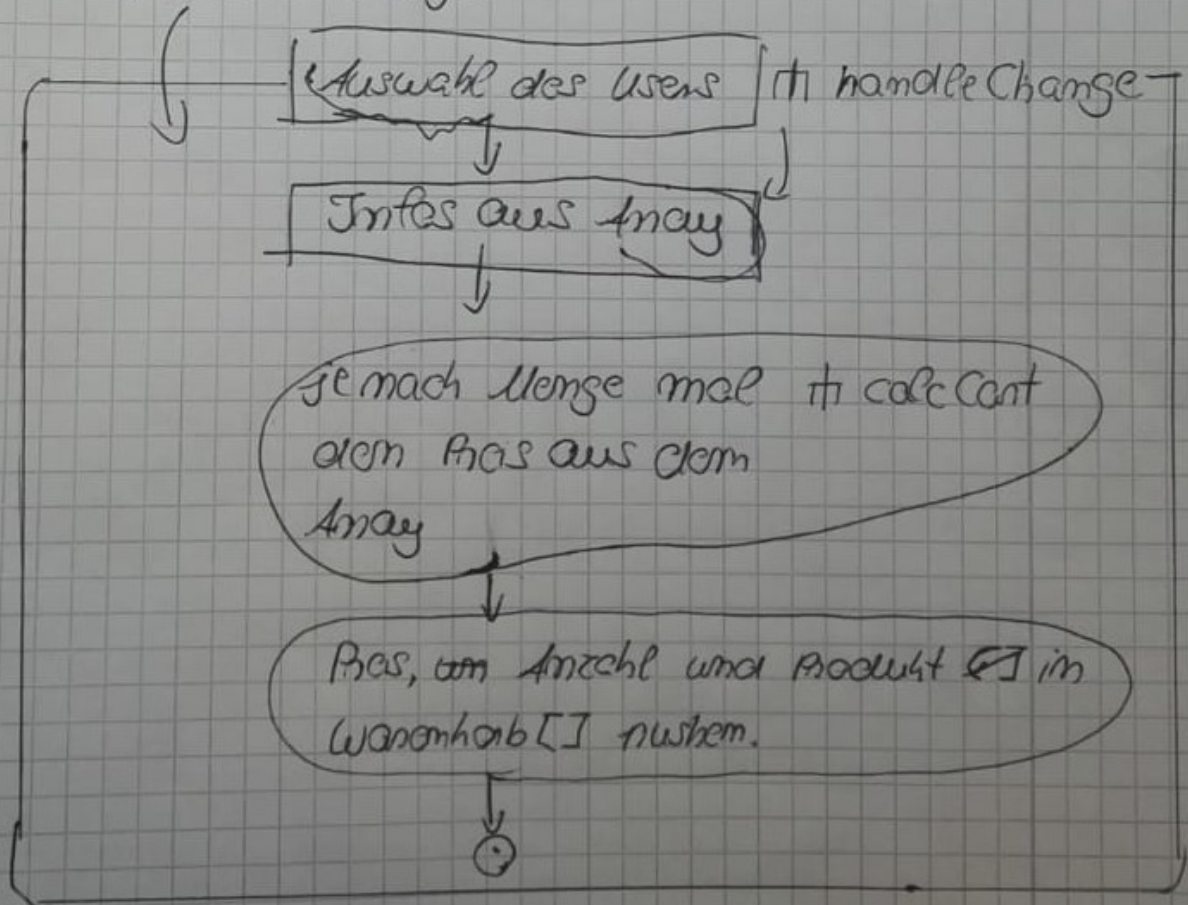 Auswahl des Users ⋔ handleChange
Infos aus Array
je nach Menge mal ⋔ calcCart
dem Preis aus dem
Array
Preis, Anzahl und Produkt in
warenkorb [] pushen.